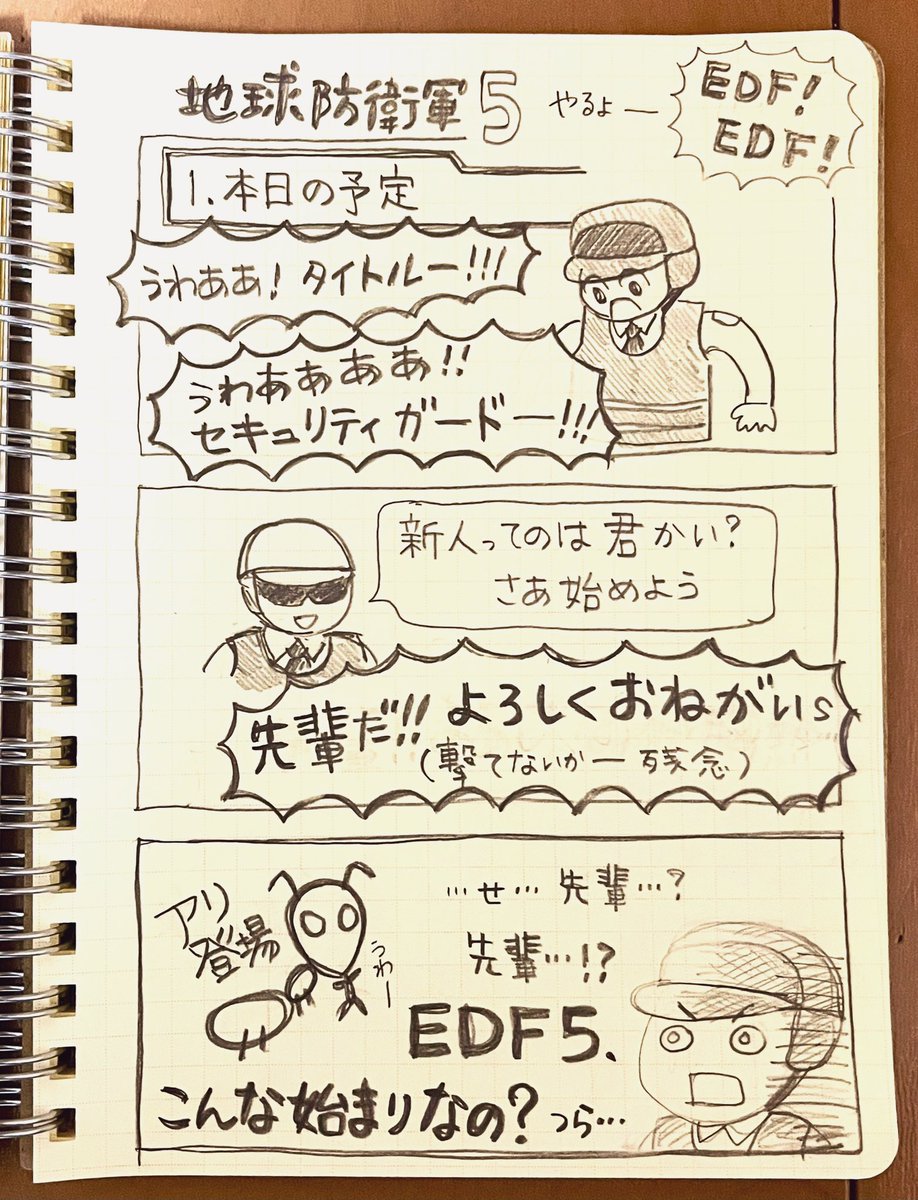 地球防衛軍5 やるよー
EDF!
EDF!
1.本日の予定
うわああ!タイトルー!!!
うわああああ!!
セキュリティガードー!!!
新人ってのは君かい?
さあ始めよう
先輩だ!!よろしくおねがいs
(撃てないかー残念)
アリ
登場
うわー
…せ…先輩…?
先輩…!?
EDF5、
こんな始まりなの?つら…